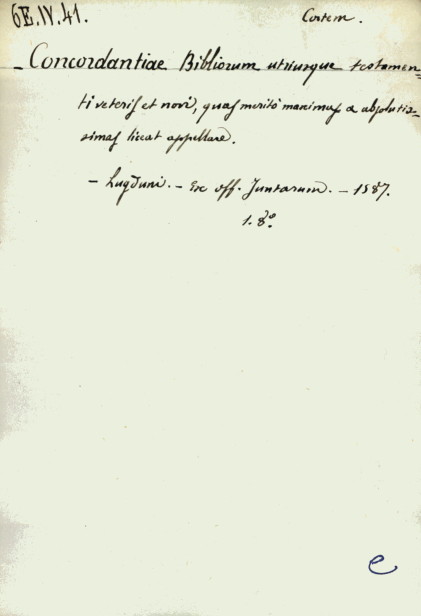 6E.IV.41.
Contem.
Concordantiae Bibliorum utriusque testamen=
ti veteris et novi, quas merito maximas & absolutis=
simas liceat appellare.
- Lugduni. - Ex off. Juntarum. - 1587.
1. 8º.
e